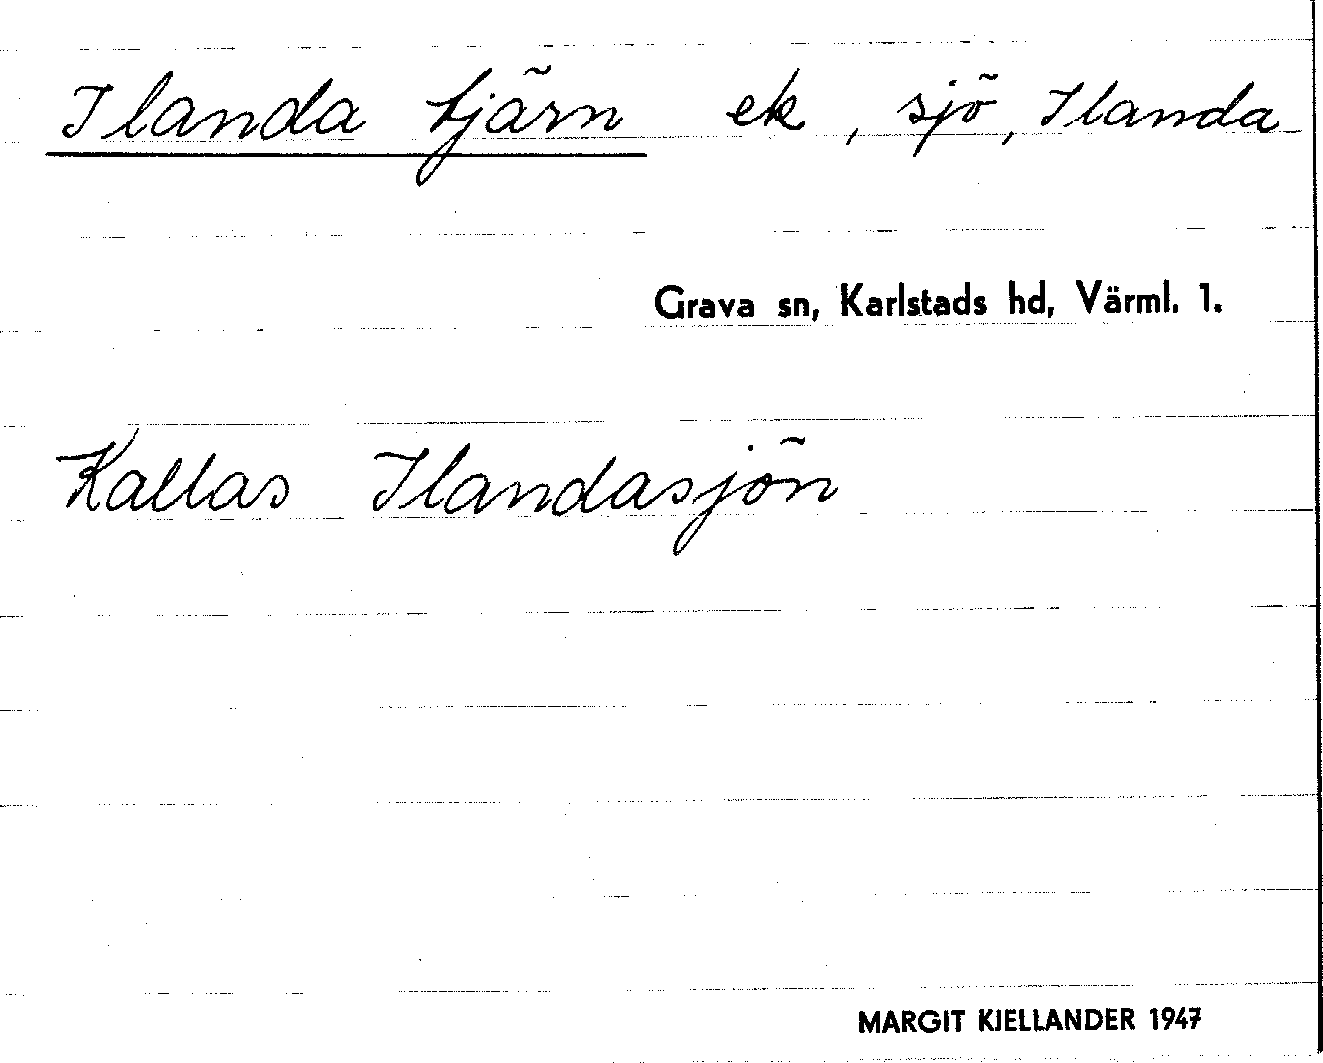 Ilanda tjärn ek, sjö, Ilanda
Grava sn, Karlstads hd, Värml. 1.
Kallas Ilandasjön
MARGIT KJELLANDER 1947